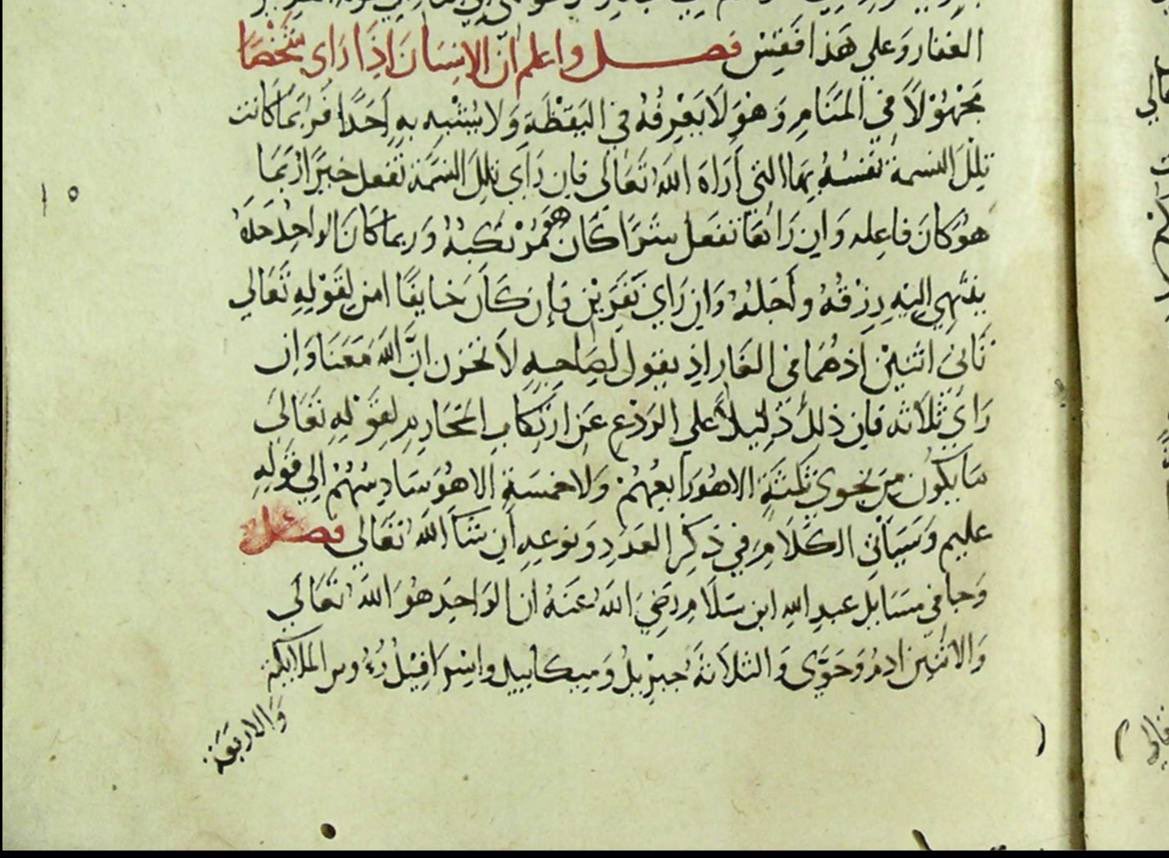 الغفار وعلي هَذا فَقِسْ فصل واعلم ان الانسان اذا راى شخصا
مَجْهُوْلاً في المنَامِ وَهُوَ لَا يَعْرِفُهُ في اليَقظَةِ وَلا يشتبه بهِ اَحَدًا فَرُبَمَا كانت
تلكَ النسمة نَفْسُهُ بها التي اَرَاهُ اللهُ تَعَالَي فاِن رَاَى تلكَ النسَمَة تفعل خيرًا رُبَمَا
هوُ كانَ فاعِله وَاِن رَاهَا تفعل شَرًا كَانَ هوَ مُرْتكبهُ وَربما كانَ الواحِدُ حدهُ
ينتهي اليْهِ رِزْقهُ وأجَلهُ وَان رَاي نَفَرَيْن فاِن كَانَ خايفًا امن لِقَوْلِهِ تَعَالي
ثانىَ اثنَيْنِ اذ هُمَا في الغَار اذ يقول لِصَاحِبهِ لاَ تحزن انَّ اللهَ مَعَنَا وَاِن
رَاَي ثَلَاثه فاِن ذلكَ دَلِيلاً علي الرَدْعِ عَن ارتكابِ المحَارِم لِقَوْلِهِ تعَالَىَ
مَا يَكُون مِنْ نجوَي ثلثَةٍ الا هُوَ رَابعُهُمْ وَلا خمسَةٍ الا هُوَ سَادِسُهُمْ اِلي قولِهِ
عليم وَسَيَأتي الكَلَامِ في ذِكرِ العَدَدِ وَنوعِهِ اِن شَاَ اللهُ تَعَالي فصل
وَجا في مَسَايل عبدِ اللهِ ابن سَلَامٍ رَضِيَ اللهُ عَنهُ ان الوَاحِدَ هُوَ اللهُ تَعَالَي
وَالاثنَيِن ادمُ وَحَوَّى وَالثلاثةُ جبرِيلُ وَميكاييل واِسْرَافِيْلُ رُءُوس الملايكة
وَالاربَعَة
١٥